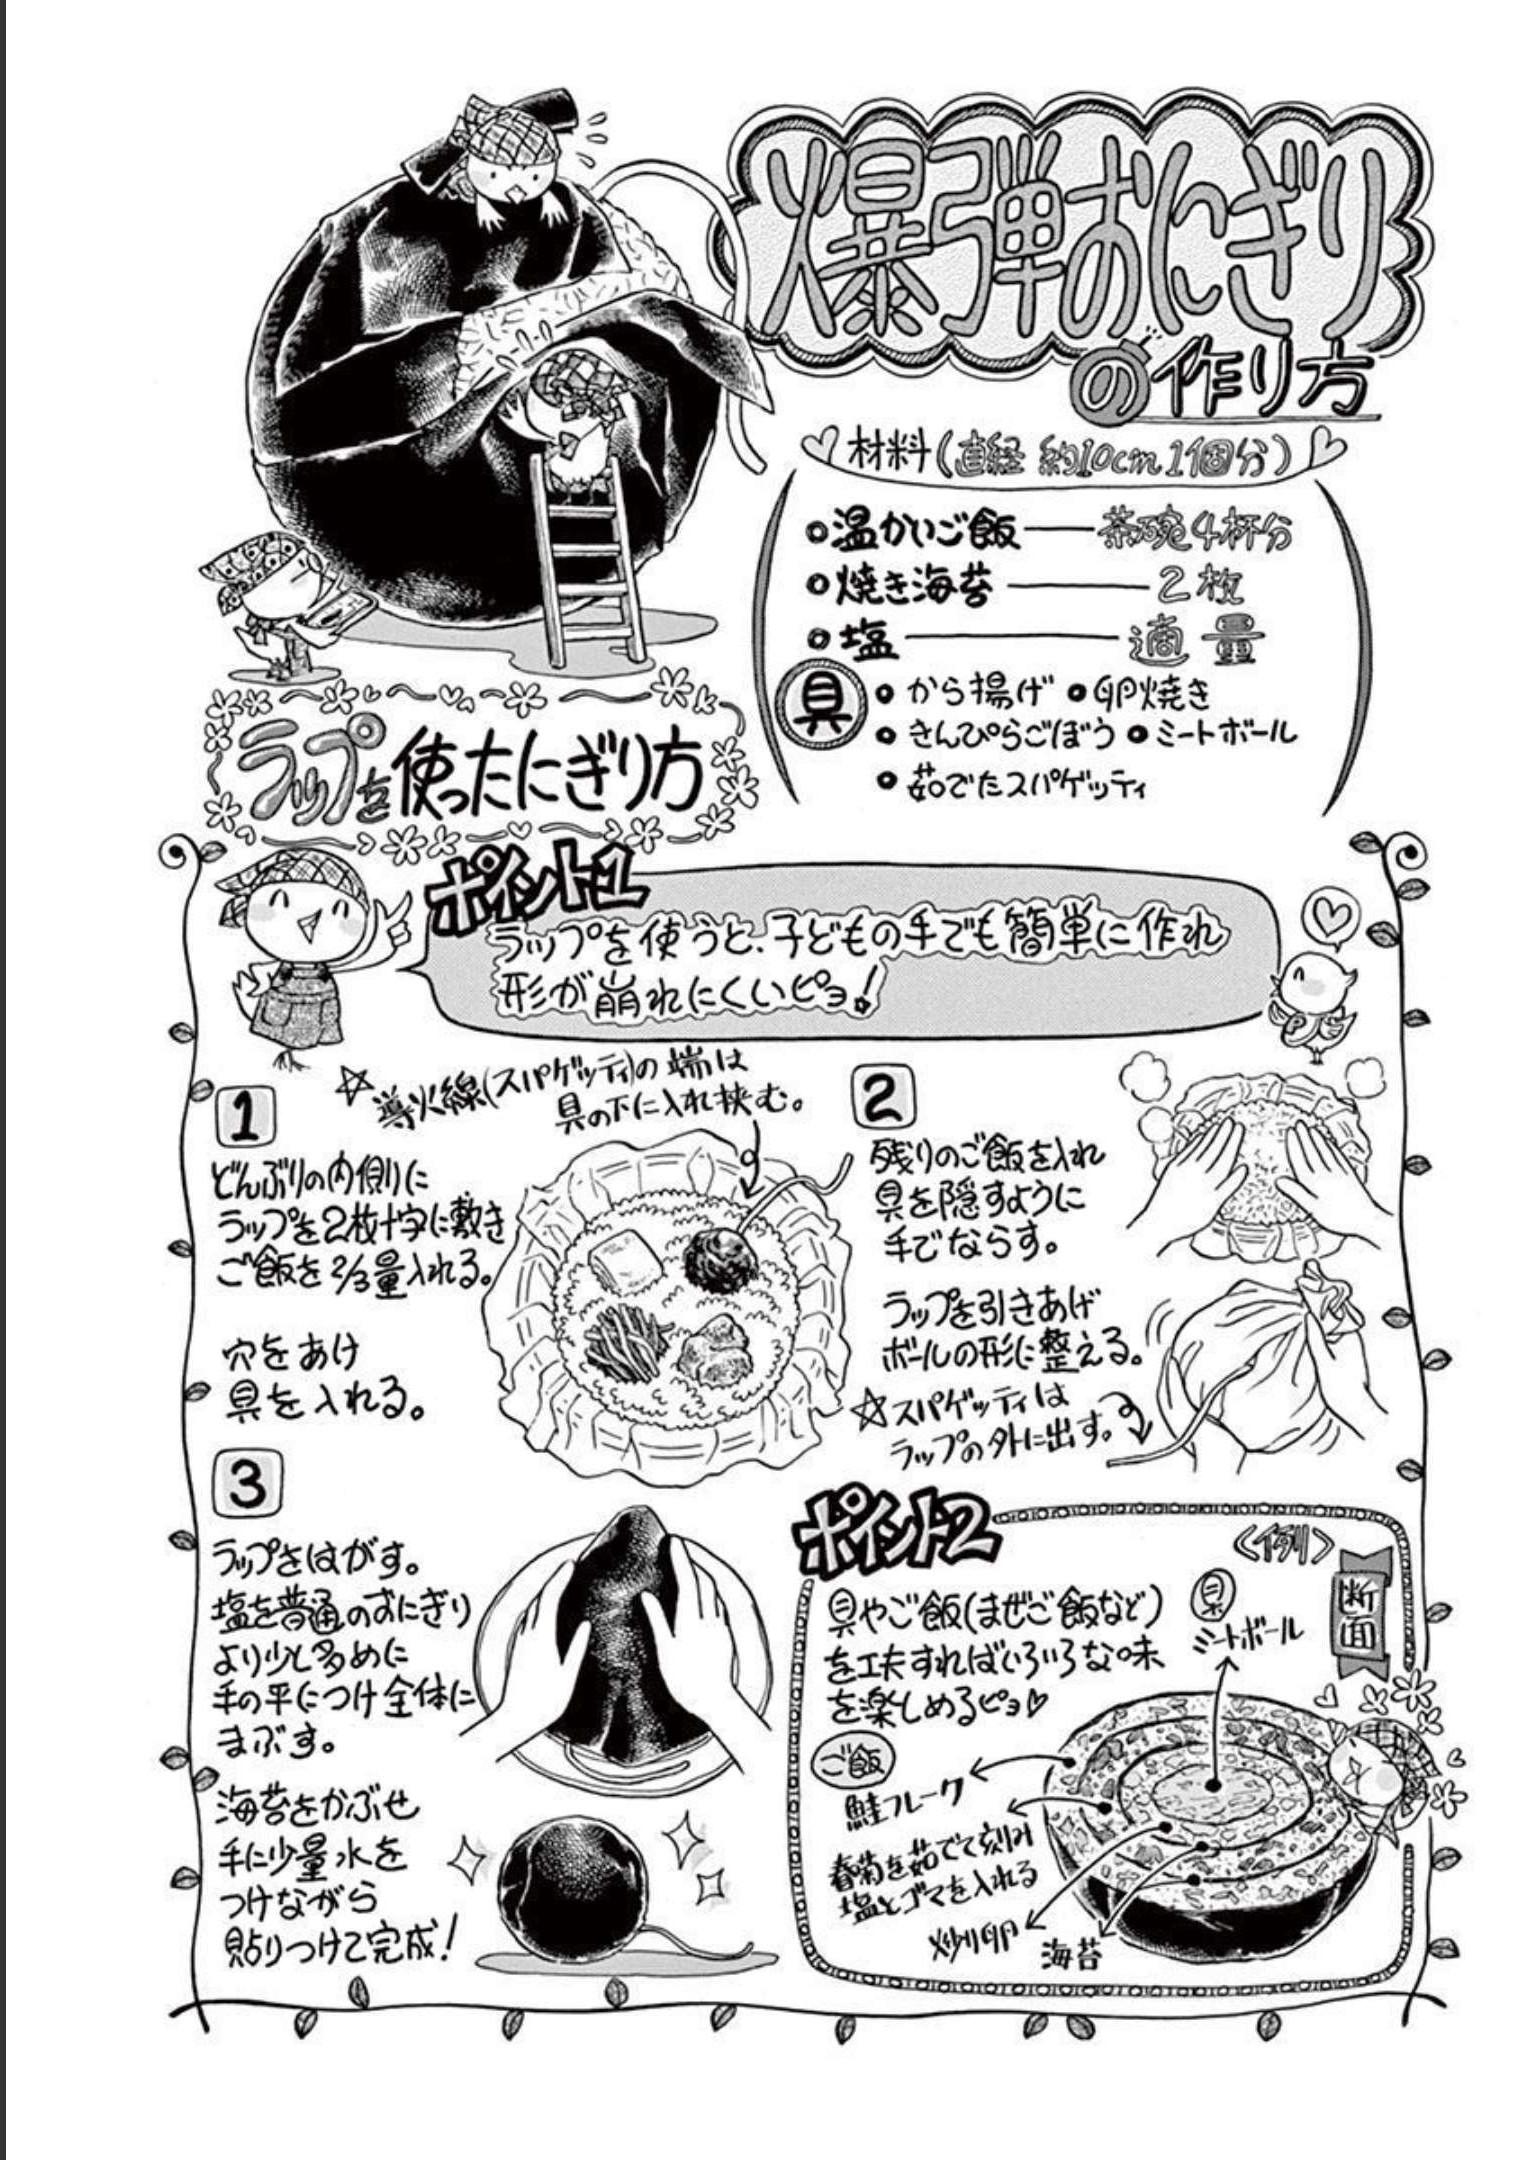 爆弾おにぎり
の作り方
材料(直経 約10cm1個分)
温かいご飯 茶碗4杯分
焼き海苔 2枚
塩 適量
具
から揚げ 卵焼き
きんぴらごぼう ミートボール
茹でたスパゲッティ
ラップを使ったにぎり方
ポイント1
ラップを使うと、子どもの手でも簡単に作れ
形が崩れにくいピョ!
1
☆導火線(スパゲッティ)の端は
具の下に入れ挟む。
どんぶりの内側に
ラップを2枚十字に敷き
ご飯を2/3量入れる。
穴をあけ
具を入れる。
2
残りのご飯を入れ
具を隠すように
手でならす。
ラップを引きあげ
ボールの形に整える。
☆スパゲッティは
ラップの外に出す。
3
ラップをはがす。
塩を普通のおにぎり
より少し多めに
手の平につけ全体に
まぶす。
海苔をかぶせ
手に少量水を
つけながら
貼りつけて完成!
ポイント2
具やご飯(まぜご飯など)
を工夫すればいろいろな味
を楽しめるピョ♡
<例>
断面
具
ミートボール
ご飯
鮭フレーク
春菊を茹でて刻み
塩とゴマを入れる
炒り卵
海苔